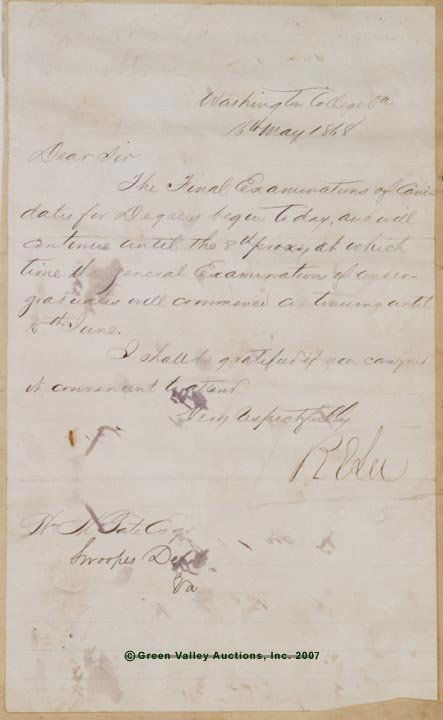 Washington College Va
May 1868
Dear Sir
The Final Examinations of Can-
didates for Degrees begin today, and will
continue until the 8th proxo, at which
time the general Examinations of under-
graduates will commence continuing until
June.
I shall be gratified if you can find
it convenient to attend
Very respectfully
R E Lee
Wm Tate Esqr
Swoopes Depot
Va
© Green Valley Auctions, Inc. 2007